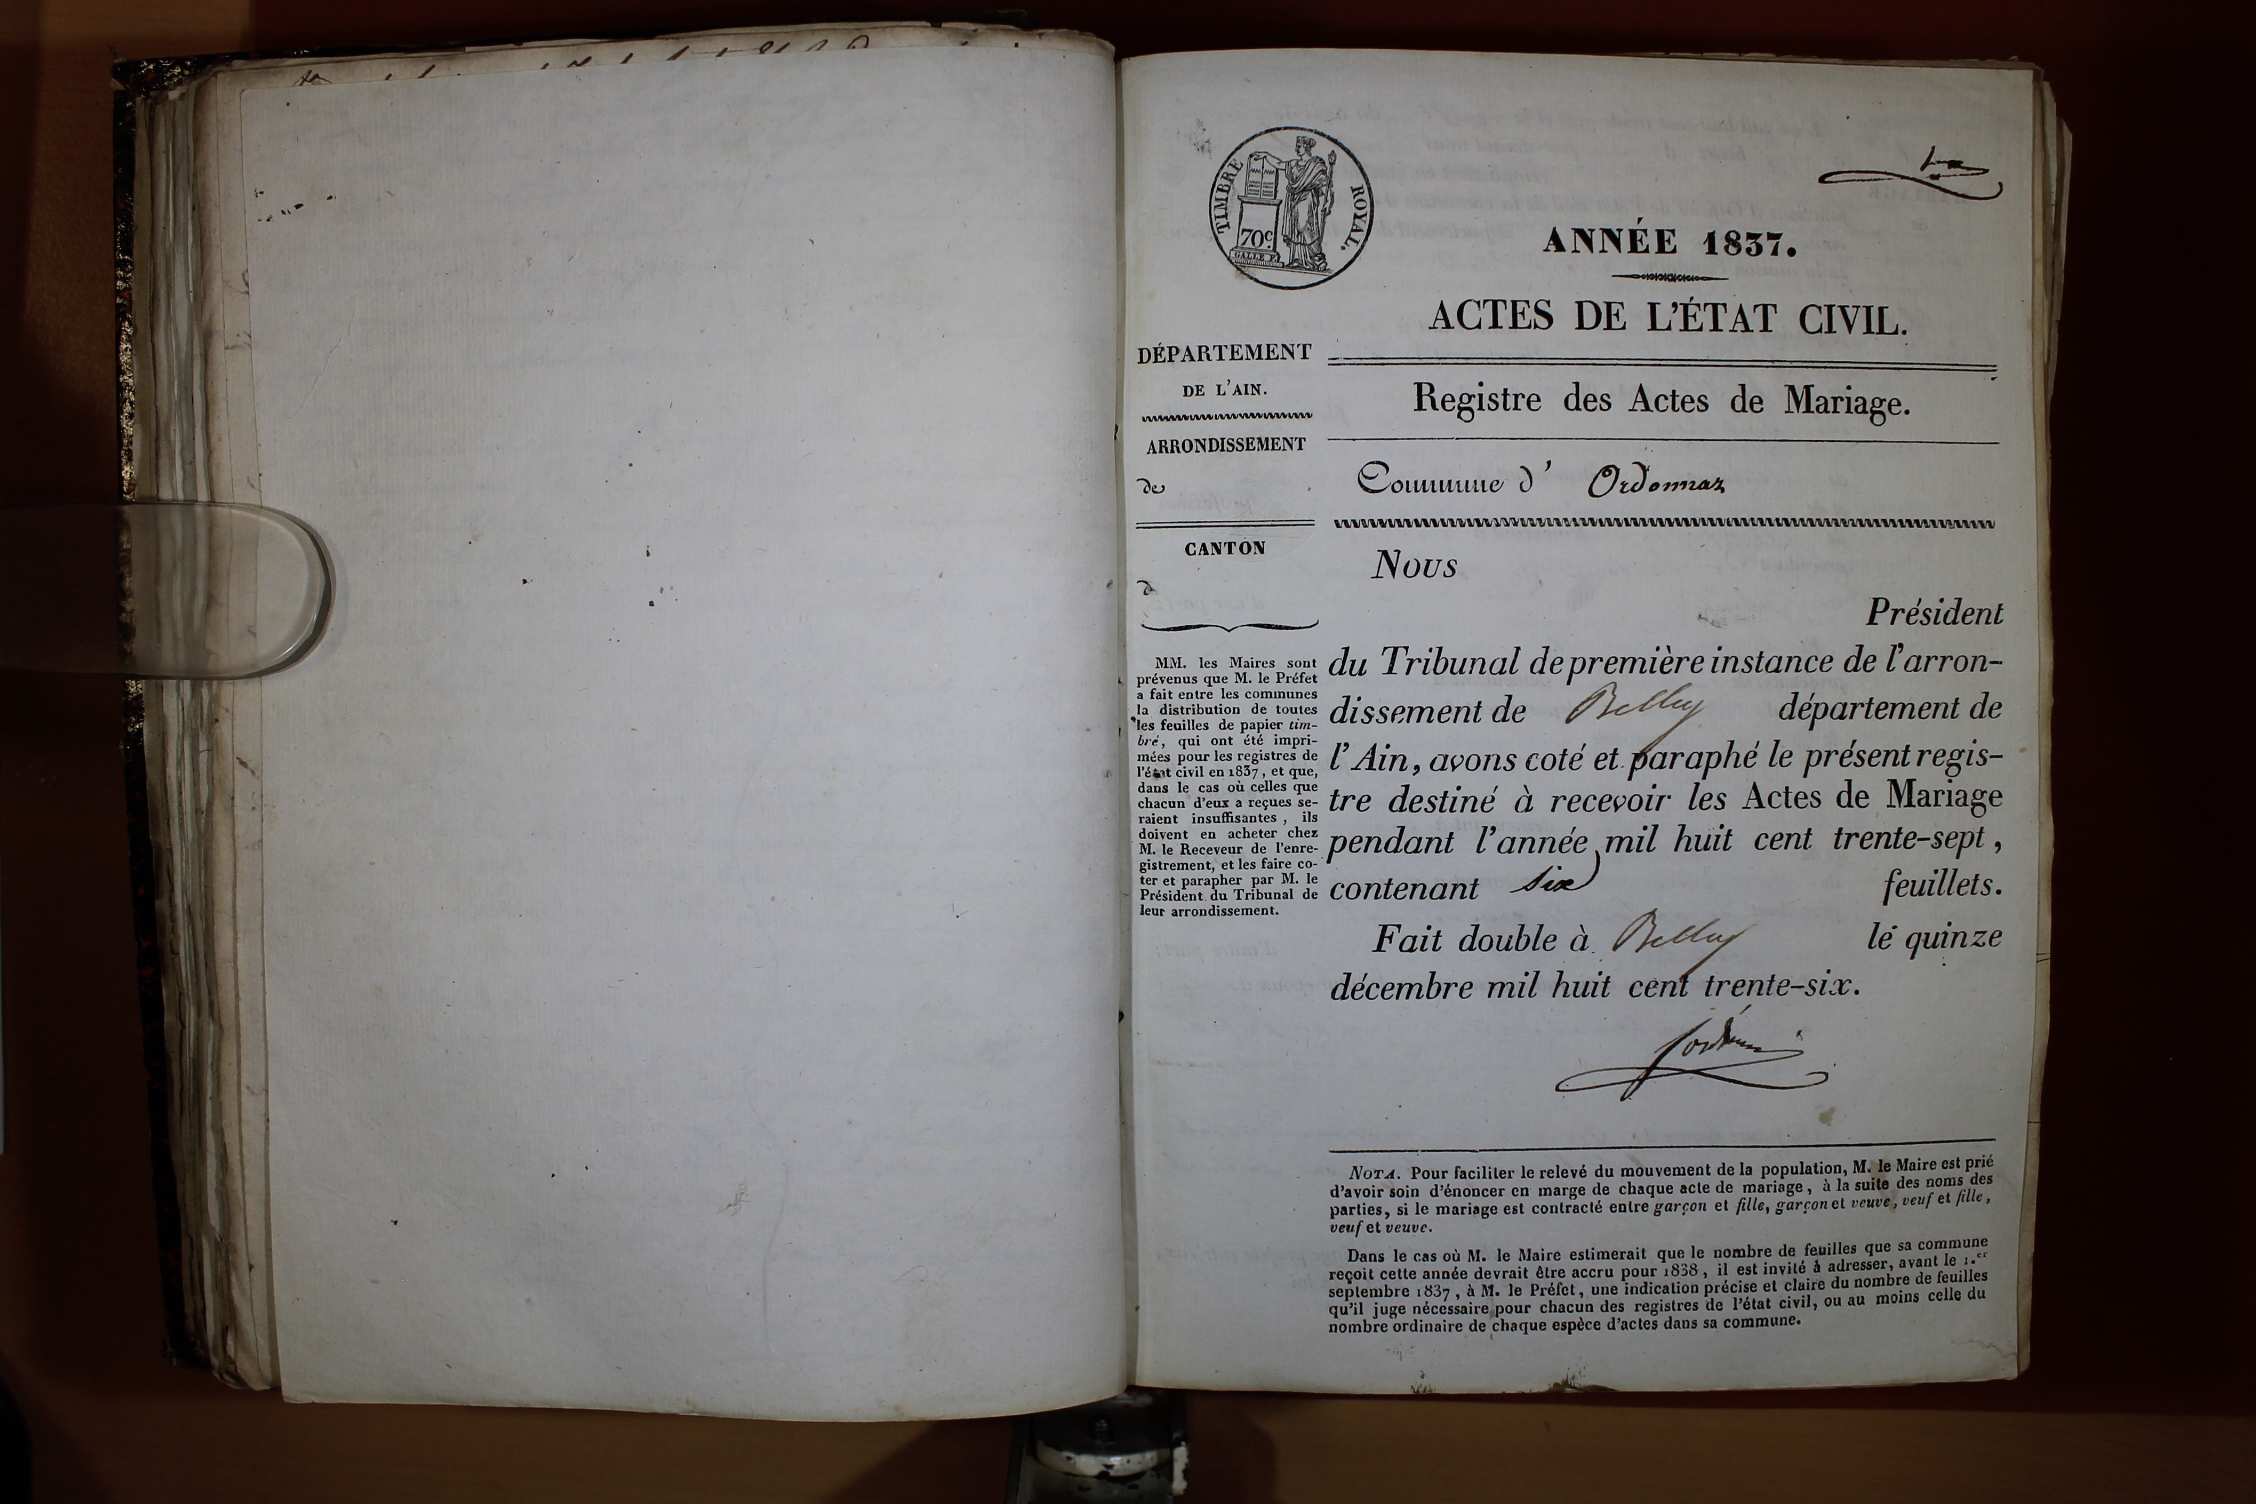 TIMBRE ROYAL.
70c.
GALLE F.
ANNÉE 1837.
ACTES DE L'ÉTAT CIVIL.
DÉPARTEMENT
DE L'AIN.
Registre des Actes de Mariage.
ARRONDISSEMENT
de
Commune d' Ordonnaz
CANTON
d
MM. les Maires sont
prévenus que M. le Préfet
a fait entre les communes
la distribution de toutes
les feuilles de papier tim-
bré, qui ont été impri-
mées pour les registres de
l'état civil en 1837, et que,
dans le cas où celles que
chacun d'eux a reçues se-
raient insuffisantes, ils
doivent en acheter chez
M. le Receveur de l'enre-
gistrement, et les faire co-
ter et parapher par M. le
Président du Tribunal de
leur arrondissement.
Nous
Président
du Tribunal de première instance de l'arron-
dissement de Belley département de
l'Ain, avons coté et paraphé le présent regis-
tre destiné à recevoir les Actes de Mariage
pendant l'année mil huit cent trente-sept,
contenant six feuillets.
Fait double à Belley le quinze
décembre mil huit cent trente-six.
NOTA. Pour faciliter le relevé du mouvement de la population, M. le Maire est prié
d'avoir soin d'énoncer en marge de chaque acte de mariage, à la suite des noms des
parties, si le mariage est contracté entre garçon et fille, garçon et veuve, veuf et fille,
veuf et veuve.
Dans le cas où M. le Maire estimerait que le nombre de feuilles que sa commune
reçoit cette année devrait être accru pour 1838, il est invité à adresser, avant le 1.er
septembre 1837, à M. le Préfet, une indication précise et claire du nombre de feuilles
qu'il juge nécessaire pour chacun des registres de l'état civil, ou au moins celle du
nombre ordinaire de chaque espèce d'actes dans sa commune.